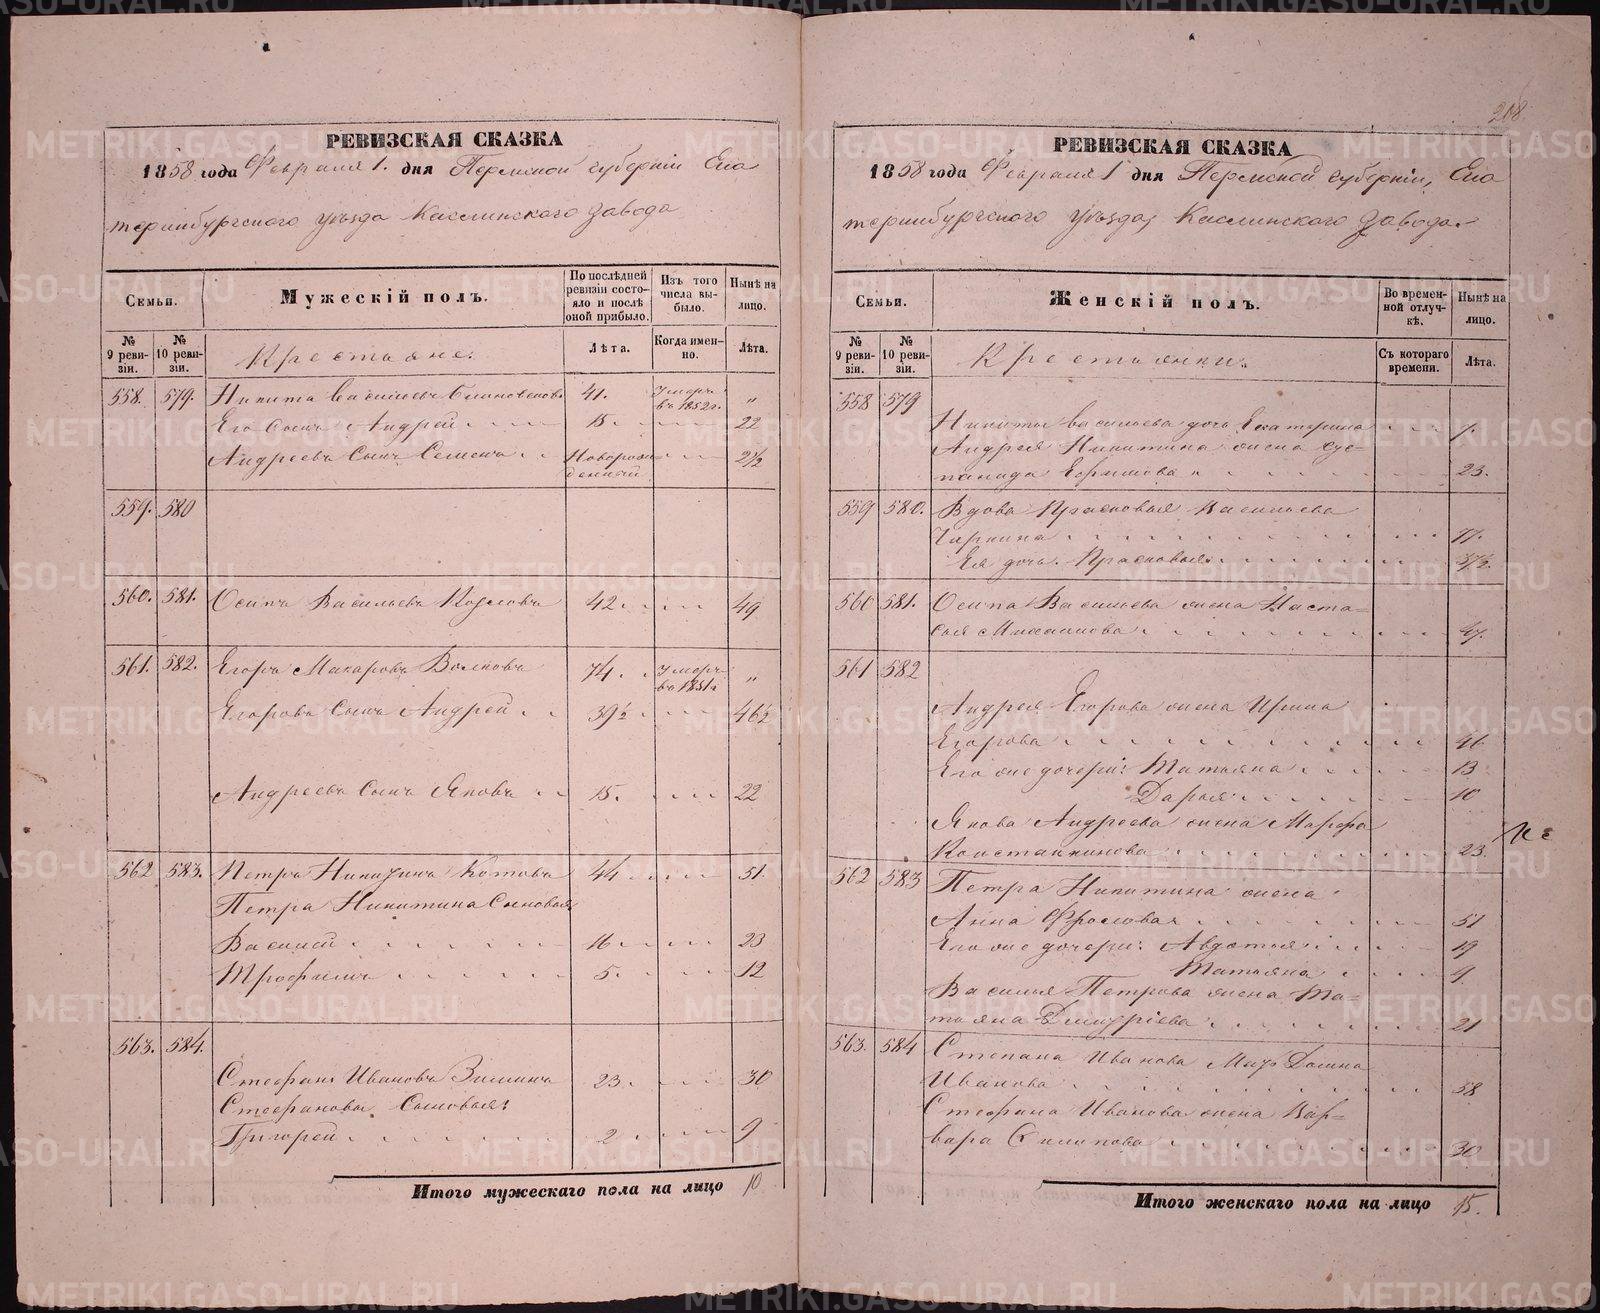 РЕВИЗСКАЯ СКАЗКА
1858 года Февраля 1. дня Пермской губернiи Ека
теринбургского уѣзда Каслинского завода
Семьи.
Мужескiй полъ.
По послѣдней ревизiи состояло и послѣ оной прибыло.
Изъ того числа выбыло.
Нынѣ на лицо.
№ 9 ревизiи.
№ 10 ревизiи.
Крестьяне:
Лѣта.
Когда именно.
Лѣта.
558. 579. Никита Васильевъ 41. Умеръ въ 1852г. „
Его Сынъ Андрей 15. 22
Андреевъ Сынъ Семенъ Новорожденный 2½
559. 580
560. 581. Осипъ Васильевъ Козловъ 42 49
561. 582. Егоръ Макаровъ Волковъ 74. Умеръ въ 1851г „
Егоровъ Сынъ Андрей 39½ 46½
Андреевъ Сынъ Яковъ 15. 22
562 583. Петръ Никитинъ Котовъ 44 51.
Петра Никитина Сыновья
Василiй 16 23
Трофимъ 5. 12
563. 584.
Стефанъ Ивановъ Зиминъ 23. 30
Стефановы Сыновья:
Григорей 2 9
Итого мужескаго пола на лицо 10
208
РЕВИЗСКАЯ СКАЗКА
1858 года Февраля 1 дня Пермской губернiи, Ека
теринбургского уѣзда, Каслинского завода.
Семьи.
Женскiй полъ.
Во временной отлучкѣ.
Нынѣ на лицо.
№ 9 ревизiи.
№ 10 ревизiи.
Крестьянки.
Съ котораго времени.
Лѣта.
558 579
Никиты Васильева дочь Екатерина
Андрея Никитина жена Сус-
панида Ефимова 23.
559 580. Вдова Прасковья Васильева
Ея дочь Прасковья
560 581. Осипа Васильева жена Наста-
сья Михайлова 47.
561 582
Андрея Егорова жена Ирина
Егорова 46
Его же дочери: Татьяна 13
Дарья 10
Якова Андреева жена Марфа
Константинова 23.
562 583 Петра Никитина жена
Анна Фролова 51
Его же дочери: Авдотья 19
Татьяна 9.
Василья Петрова жена Та-
тьяна Дмитрiева 21
563. 584 Степана Иванова Мать Домна
Иванова 58
Стефана Иванова жена Вар-
вара Филипова 30
Итого женскаго пола на лицо 15.
METRIKI.GASO-URAL.RU